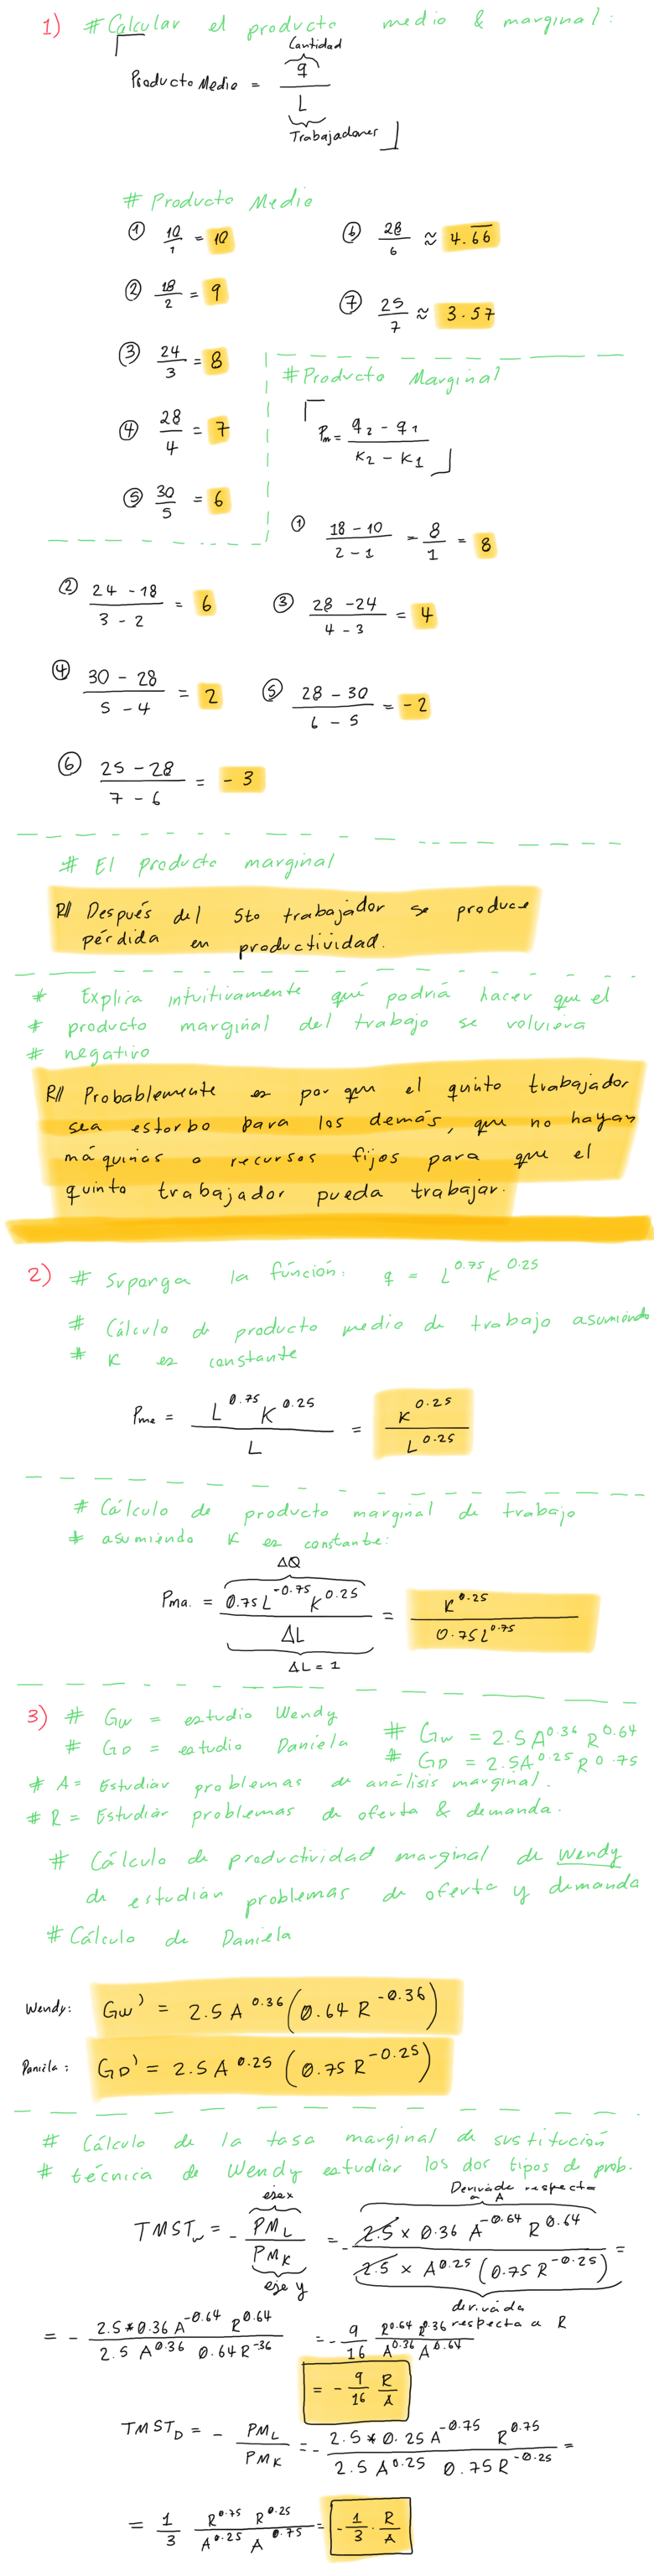 1) # Calcular el producto medio & marginal:
Cantidad
Producto Medio = q / L
Trabajadores
# Producto Medio
① 10/1 = 10
⑥ 28/6 ≈ 4.66
② 18/2 = 9
⑦ 25/7 ≈ 3.57
③ 24/3 = 8
④ 28/4 = 7
⑤ 30/5 = 6
# Producto Marginal
Pm = (q2 - q1) / (K2 - K1)
① (18 - 10) / (2 - 1) = 8/1 = 8
② (24 - 18) / (3 - 2) = 6
③ (28 - 24) / (4 - 3) = 4
④ (30 - 28) / (5 - 4) = 2
⑤ (28 - 30) / (6 - 5) = -2
⑥ (25 - 28) / (7 - 6) = -3
# El producto marginal
R// Después del 5to trabajador se produce
pérdida en productividad.
# Explica intuitivamente qué podría hacer que el
# producto marginal del trabajo se volviera
# negativo
R// Probablemente es por que el quinto trabajador
sea estorbo para los demás, que no hayan
máquinas o recursos fijos para que el
quinto trabajador pueda trabajar.
2) # Suponga la función: q = L^0.75 K^0.25
# Cálculo de producto medio de trabajo asumiendo
# K es constante
Pme = L^0.75 K^0.25 / L = K^0.25 / L^0.25
# Cálculo de producto marginal de trabajo
# asumiendo K es constante:
ΔQ
Pma. = 0.75 L^-0.75 K^0.25 / ΔL = K^0.25 / 0.75 L^0.75
ΔL = 1
3) # GW = estudio Wendy
# GD = estudio Daniela
# GW = 2.5 A^0.36 R^0.64
# GD = 2.5 A^0.25 R^0.75
# A = Estudiar problemas de análisis marginal.
# R = Estudiar problemas de oferta & demanda.
# Cálculo de productividad marginal de Wendy
de estudiar problemas de oferta y demanda
# Cálculo de Daniela
Wendy: GW' = 2.5 A^0.36 (0.64 R^-0.36)
Daniela: GD' = 2.5 A^0.25 (0.75 R^-0.25)
# Cálculo de la tasa marginal de sustitución
# técnica de Wendy estudiar los dos tipos de prob.
eje x
Derivada respecta a A
TMSTw = - PML / PMK = - 2.5 × 0.36 A^-0.64 R^0.64 / 2.5 × A^0.25 (0.75 R^-0.25) =
eje y
derivada respecta a R
= - 2.5*0.36 A^-0.64 R^0.64 / 2.5 A^0.36 0.64 R^-36 = - 9/16 R^0.64 R^0.36 / A^0.36 A^0.64
= - 9/16 R/A
TMSTD = - PML / PMK = - 2.5 * 0.25 A^-0.75 R^0.75 / 2.5 A^0.25 0.75 R^-0.25 =
= 1/3 R^0.75 R^0.25 / A^0.25 A^0.75 = - 1/3 · R/A